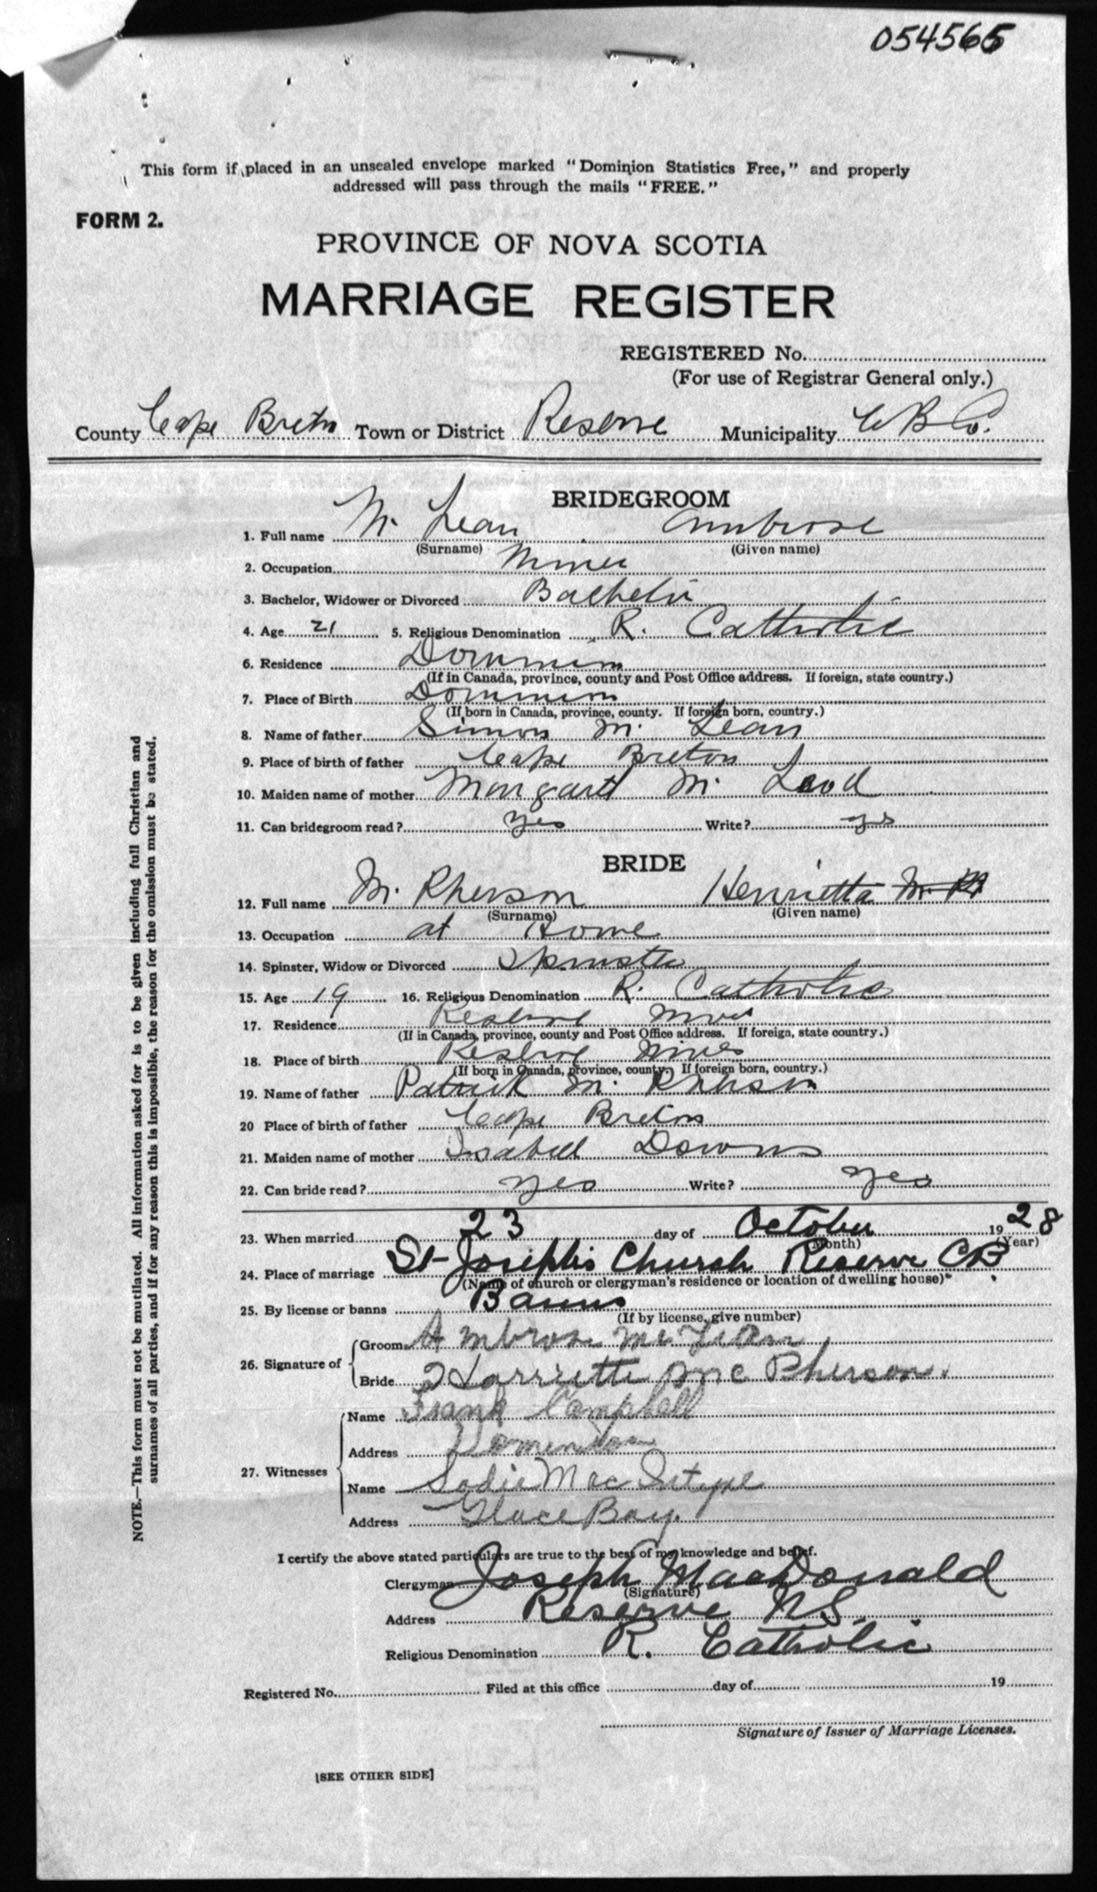 054565
This form if placed in an unsealed envelope marked "Dominion Statistics Free," and properly
addressed will pass through the mails "FREE."
FORM 2.
PROVINCE OF NOVA SCOTIA
MARRIAGE REGISTER
REGISTERED No.
(For use of Registrar General only.)
County Cape Breton Town or District Reserve Municipality C B Co.
BRIDEGROOM
1. Full name Mc Lean Ambrose
(Surname) (Given name)
2. Occupation Miner
3. Bachelor, Widower or Divorced Bachelor
4. Age 21 5. Religious Denomination R. Catholic
6. Residence Dominion
(If in Canada, province, county and Post Office address. If foreign, state country.)
7. Place of Birth Dominion
(If born in Canada, province, county. If foreign born, country.)
8. Name of father Simon Mc Lean
9. Place of birth of father Cape Breton
10. Maiden name of mother Margaret Mc Leod
11. Can bridegroom read? yes Write? yes
BRIDE
12. Full name Mc Pherson Henrietta
(Surname) (Given name)
13. Occupation at Home
14. Spinster, Widow or Divorced Spinster
15. Age 19 16. Religious Denomination R. Catholic
17. Residence Reserve Mines
(If in Canada, province, county and Post Office address. If foreign, state country.)
18. Place of birth Reserve Mines
(If born in Canada, province, county. If foreign born, country.)
19. Name of father Patrick Mc Pherson
20 Place of birth of father Cape Breton
21. Maiden name of mother Isabell Downs
22. Can bride read? yes Write? yes
23. When married 23 day of October 1928
(Month) (Year)
24. Place of marriage St-Joseph's Church Reserve CB.
(Name of church or clergyman's residence or location of dwelling house)
25. By license or banns Banns
(If by license, give number)
26. Signature of
Groom Ambrose McLean
Bride Harriette McPherson.
27. Witnesses
Name Frank Campbell
Address Dominion
Name Sadie MacIntyre
Address Glace Bay.
I certify the above stated particulars are true to the best of my knowledge and belief.
Clergyman Joseph MacDonald
(Signature)
Address Reserve NS.
Religious Denomination R. Catholic
Registered No. Filed at this office day of 19
Signature of Issuer of Marriage Licenses.
[SEE OTHER SIDE]
NOTE.—This form must not be mutilated. All information asked for is to be given including full Christian and
surnames of all parties, and if for any reason this is impossible, the reason for the omission must be stated.